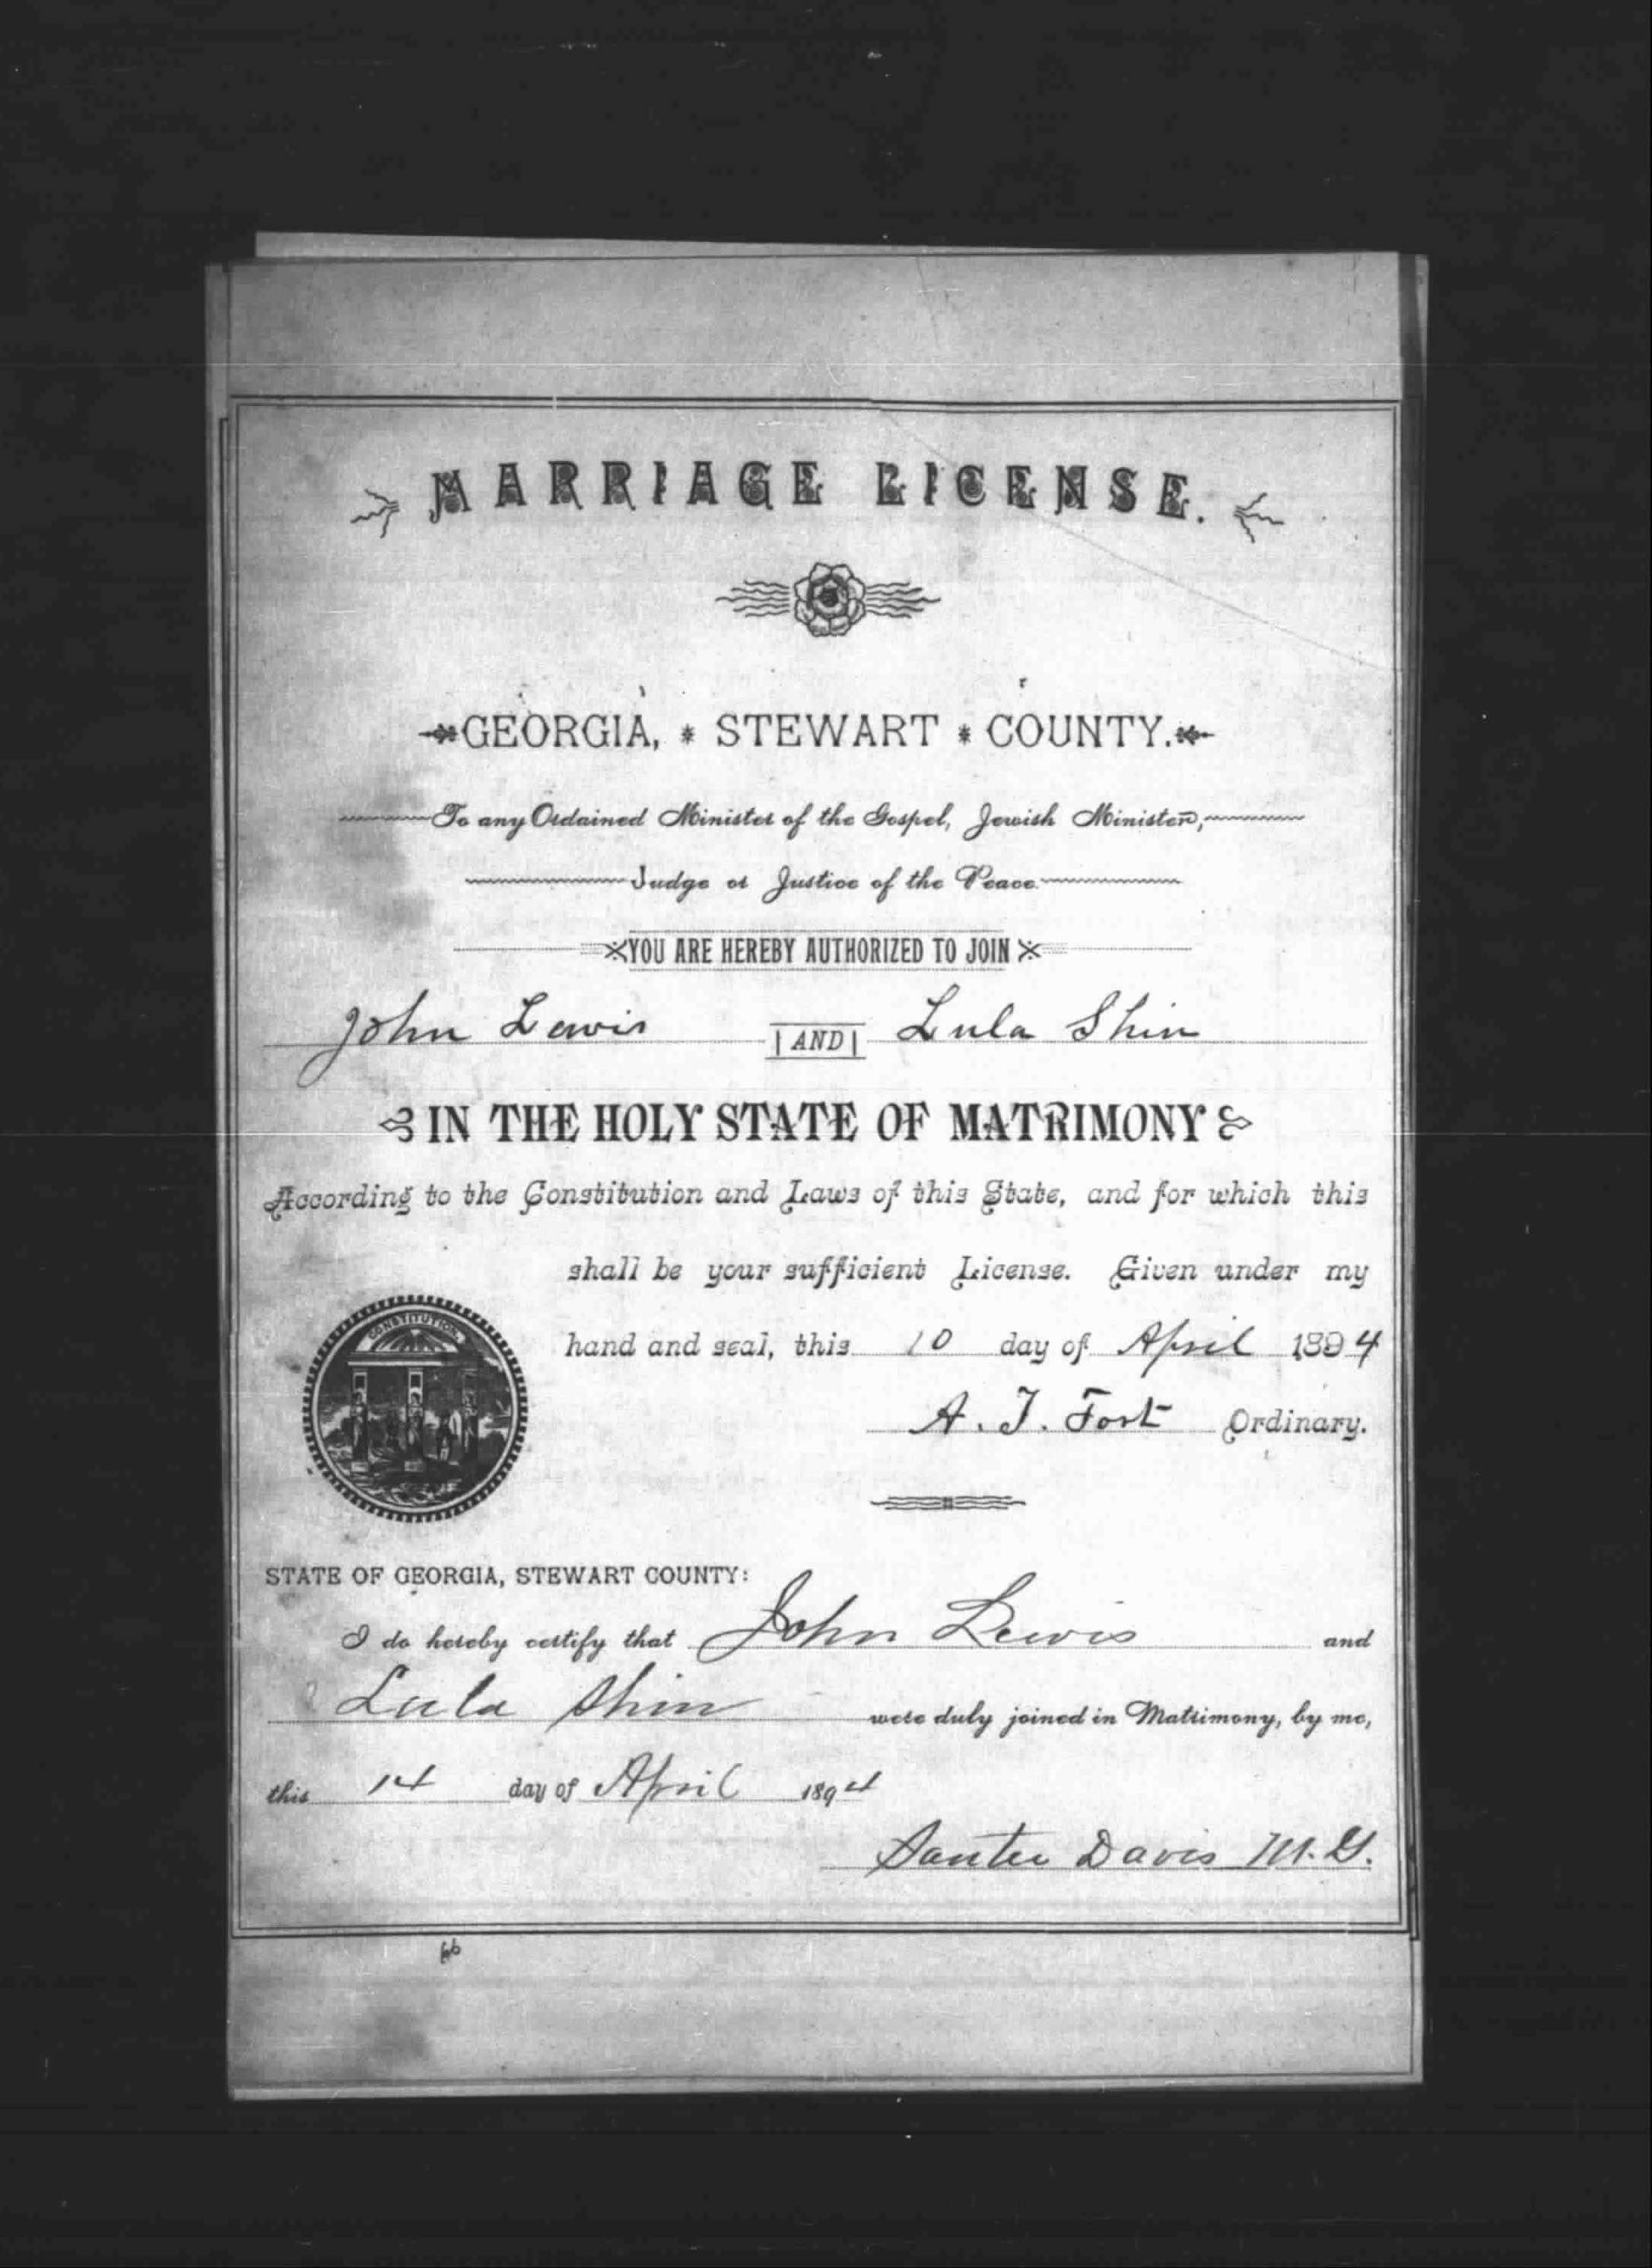 MARRIAGE LICENSE.
GEORGIA, * STEWART * COUNTY.
To any Ordained Minister of the Gospel, Jewish Minister,
Judge or Justice of the Peace.
YOU ARE HEREBY AUTHORIZED TO JOIN
John Lewis AND Lula Shin
IN THE HOLY STATE OF MATRIMONY
According to the Constitution and Laws of this State, and for which this
shall be your sufficient License. Given under my
CONSTITUTION
hand and seal, this 10 day of April 1894
A. T. Fort Ordinary.
STATE OF GEORGIA, STEWART COUNTY:
I do hereby certify that John Lewis and
Lula Shin were duly joined in Matrimony, by me,
this 14 day of April 1894
Davis M. G.